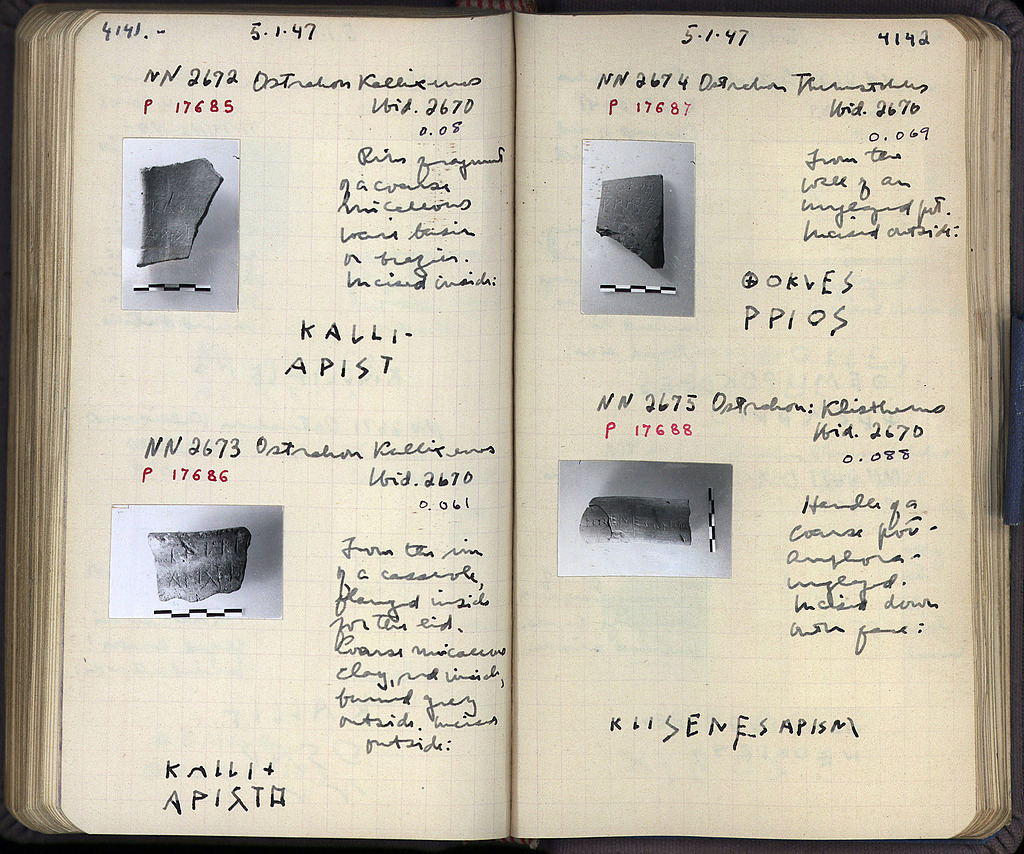 4141.-
5.1.47
NN 2672 Ostrakon Kallixenos
P 17685
Ibid. 2670
0.08
Rim fragment
of a coarse
micaceous
ware basin
or brazier.
Incised inside:
KALLI-
APIST
NN 2673 Ostrakon Kallixenos
P 17686
Ibid. 2670
0.061
From the rim
of a casserole,
flanged inside
for the lid.
Coarse micaceous
clay, red inside,
burned grey
outside. Incised
outside:
KALLI+
APISTO
5.1.47
4142
NN 2674 Ostrakon Themistokles
P 17687
Ibid. 2670
0.069
From the
wall of an
unglazed pot.
Incised outside:
⊕OKLES
PPIOS
NN 2675 Ostrakon: Klisthenes
P 17688
Ibid. 2670
0.088
Handle of a
coarse pot-
amphora-
unglazed.
Incised down
outer face:
KLISENES APISM